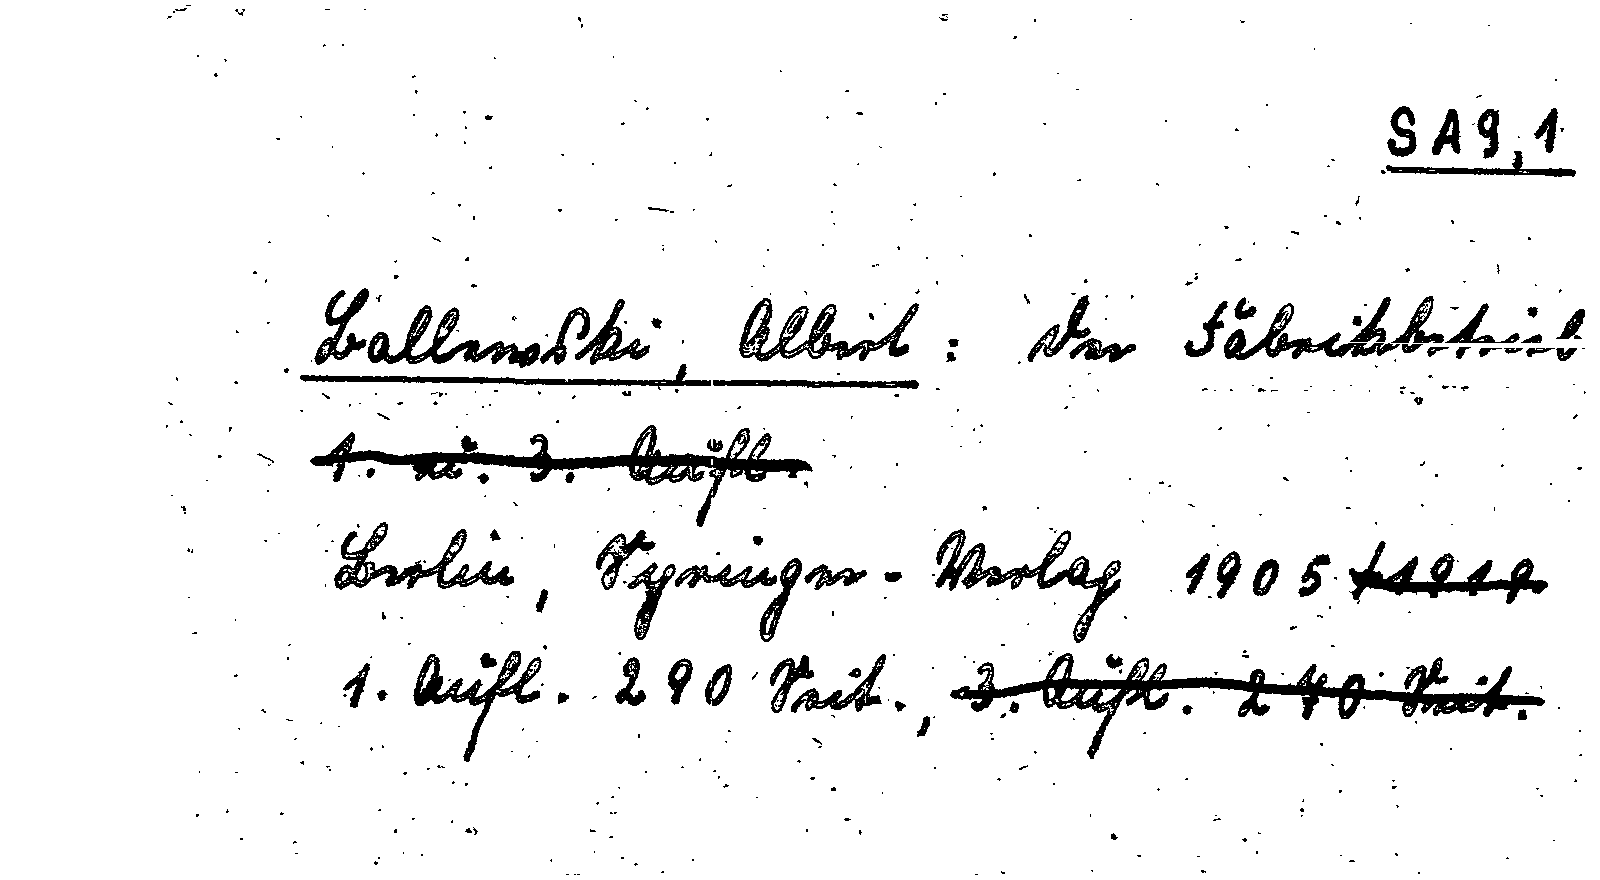 SA9,1
Ballewski, Albert: Der Fabrikbetrieb
1. u. 3. Aufl.
Berlin, Springer-Verlag 1905 +1919
1. Aufl. 290 Seit., 3. Aufl. 270 Seit.